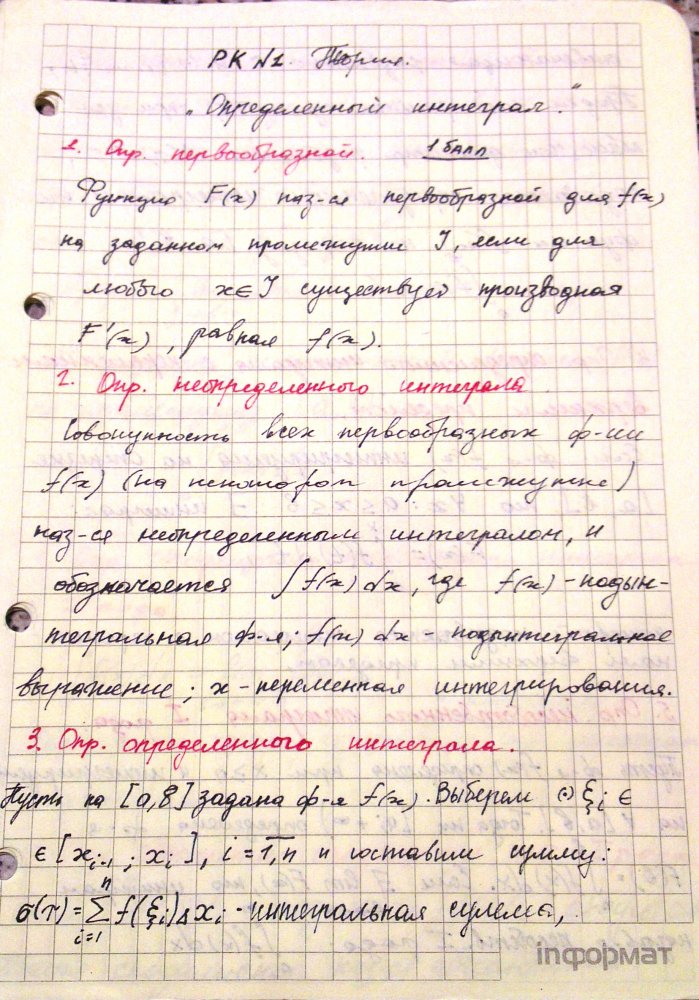 РК №1. Теория.
"Определенный интеграл."
1. Опр. первообразной. 1 БАЛЛ
Функция F(x) наз-ся первообразной для f(x)
на заданном промежутке I, если для
любого x∈I существует производная
F'(x), равная f(x).
2. Опр. неопределенного интеграла
Совокупность всех первообразных ф-ии
f(x) (на некотором промежутке)
наз-ся неопределенным интегралом, и
обозначается ∫f(x)dx, где f(x) - подын-
тегральная ф-я; f(x)dx - подынтегральное
выражение; x - переменная интегрирования.
3. Опр. определенного интеграла.
Пусть на [a,b] задана ф-я f(x). Выберем ⊙ ξi ∈
∈ [xi-1; xi], i=1,n и составим сумму:
σ(τ) = ∑ f(ξi)Δxi - интегральная сумма,
n
i=1
inформат